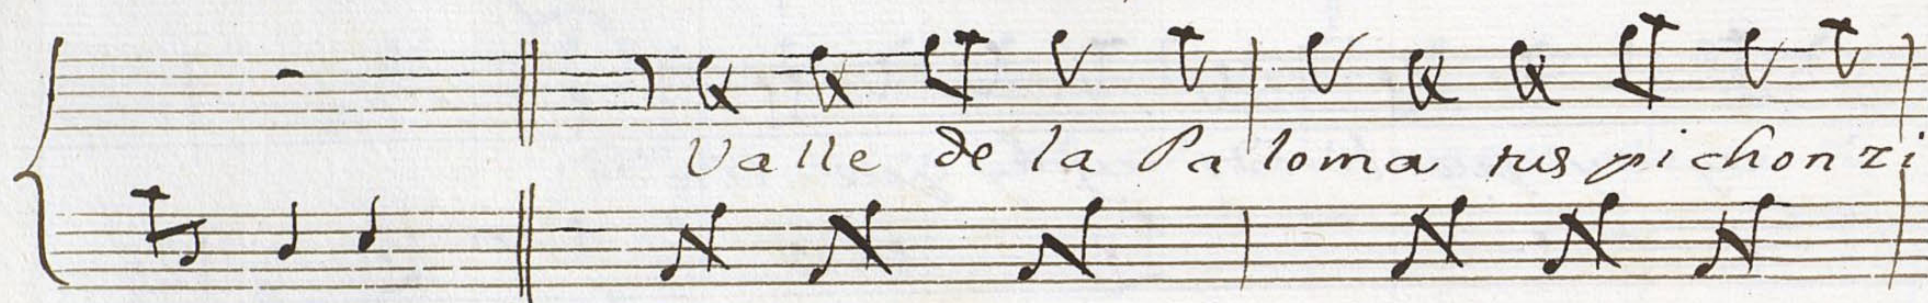 Valle de la Paloma tus pichonzi